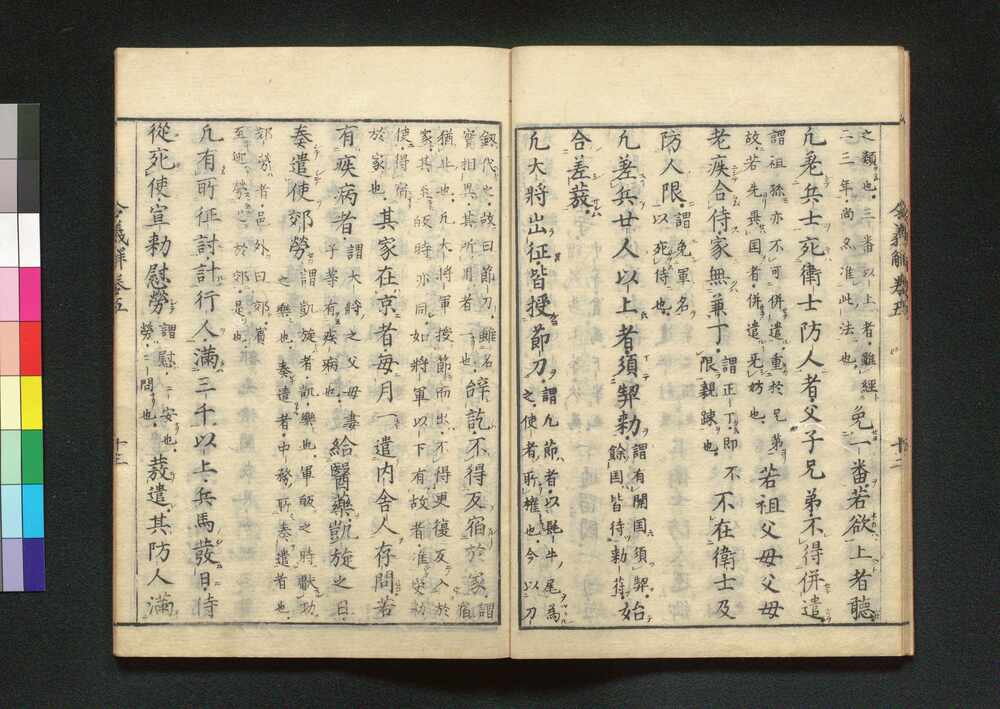 之類也。三番以上者。雖経
二三年。尚亦准此法也。
免一番。若欲上者聴
凡兵士死衛士防人者。父子兄弟不得併遣
謂祖孫亦不可併遣。重於兄弟
故。若先畢国者。併遣无妨也。
若祖父母父母
老疾合侍。家無兼丁。
謂正丁。即不
限親疎也。
不在衛士及
防人限。
謂免軍名。
以死侍也。
凡差兵廿人以上者。須契勅。
謂有関国須契。
餘国皆待勅符。
始
合差発。
凡大将出征。皆授節刀。
謂凡節者。以髦牛尾為
之。使者所権也。今以刀
令義解巻五
十二
釼代之。故曰節刀。雖名
実相異。其所用者
一也。
辞訖。不得反宿於家。
謂
宿
猶止也。凡大将軍授節而出。不得更復反入於
家。其兵皈時亦同。如将軍以下有故者。准
使得宿
於家也。
其家在京者。毎月一遣内舎人存問。若
有疾病者。
謂大将之父母妻
子等有疾病也。
給醫薬。凱旋之日
奏遣使郊勞。
謂凱旋者凱樂也。軍皈之時献功
之樂也。奏遣者。中務所奏遣者也。
郊勞者。邑外曰郊。賓
至迎勞之於郊是也。
凡有所征討。計行人満三千以上。兵馬發日。侍
從充使。宣勅慰勞。
謂慰安也。
勞問也。
發遣。其防人満
令義解巻五
十三